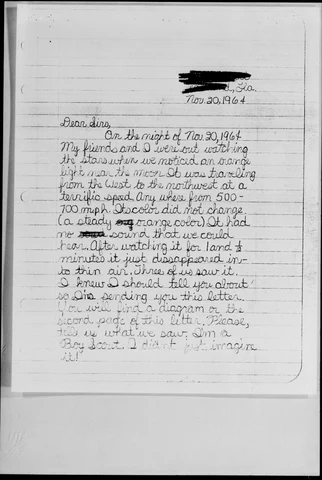 , Fla.
Nov. 20, 1964
Dear Sirs,
On the night of Nov 20, 1964
My friends and I were out watching
the stars when we noticed an orange
light near the moon. It was traveling
from the West to the northwest at a
terrific speed. Any where from 500-
700 mph. Its color did not change.
(a steady orange color) It had
no sound that we could
hear. After watching it for 1 and ½
minutes it just dissappeared in-
to thin air. Three of us saw it.
I knew I should tell you about
so I'm sending you this letter.
You will find a diagram on the
second page of this letter. Please,
tell us what we saw. I'm a
Boy Scout. I didn't just imagine
it!